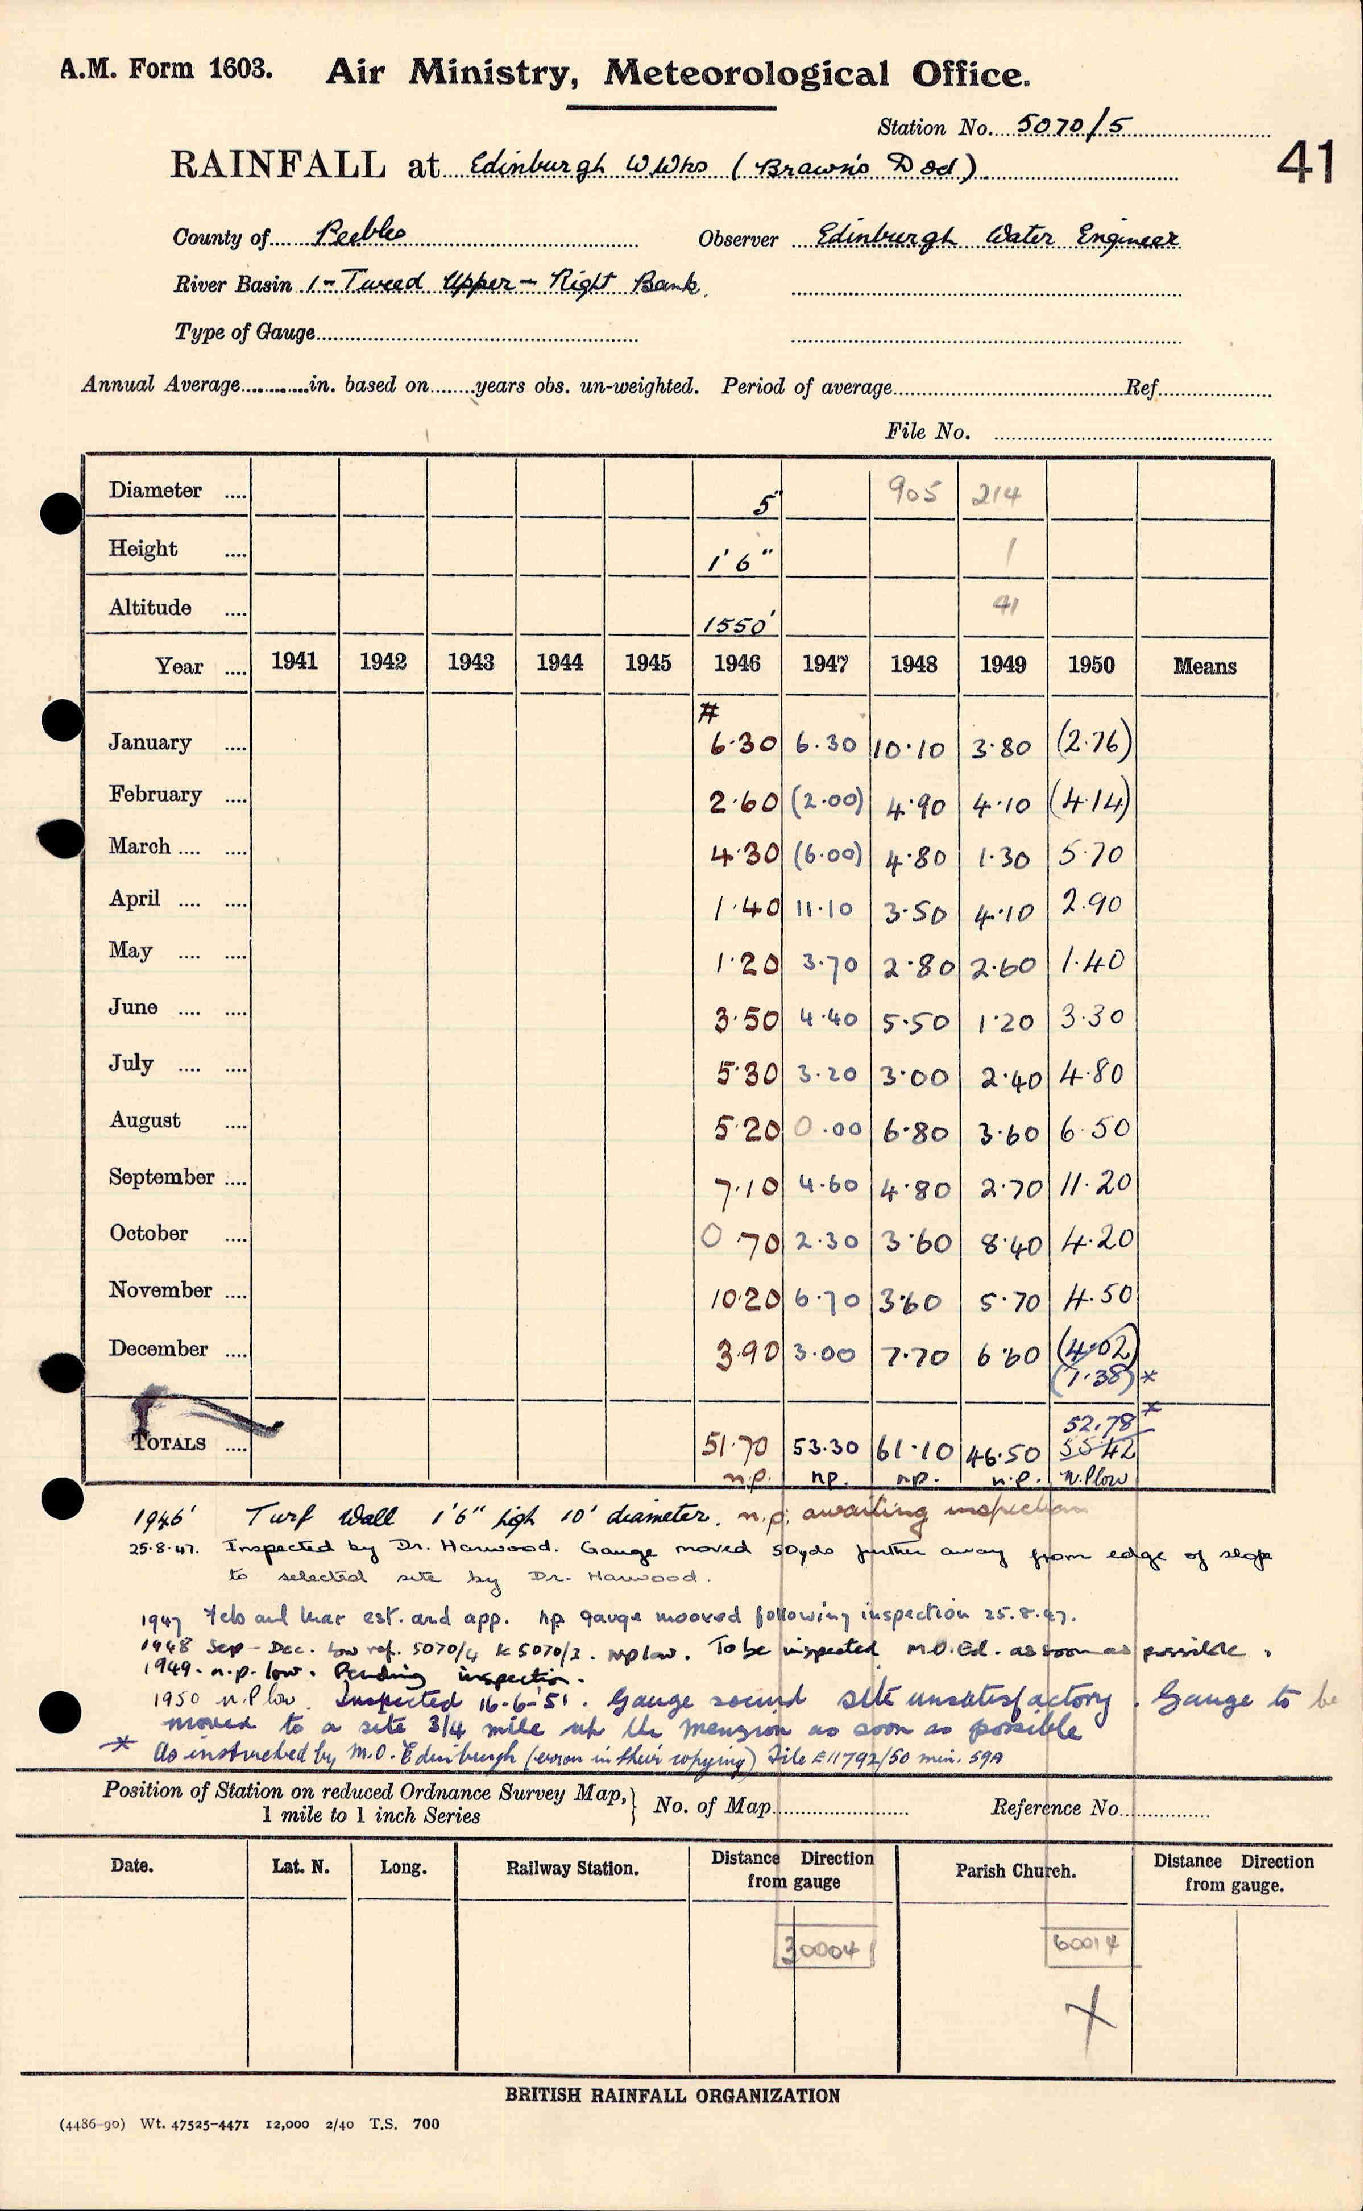 A.M. Form 1603. Air Ministry, Meteorological Office.
Station No. 5070/5
41
RAINFALL at Edinburgh W Wks (Brawn's Dod)
County of Peebles Observer Edinburgh Water Engineer
River Basin 1 - Tweed Upper - Right Bank.
Type of Gauge
Annual Average in. based on years obs. un-weighted. Period of average Ref.
File No.
Diameter 5" 905 214
Height 1'6" 1
Altitude 1550' 41
Year 1941 1942 1943 1944 1945 1946 1947 1948 1949 1950 Means
#
January 6.30 6.30 10.10 3.80 (2.76)
February 2.60 (2.00) 4.90 4.10 (4.14)
March 4.30 (6.00) 4.80 1.30 5.70
April 1.40 11.10 3.50 4.10 2.90
May 1.20 3.70 2.80 2.60 1.40
June 3.50 4.40 5.50 1.20 3.30
July 5.30 3.20 3.00 2.40 4.80
August 5.20 0.00 6.80 3.60 6.50
September 7.10 4.60 4.80 2.70 11.20
October 0 70 2.30 3.60 8.40 4.20
November 10.20 6.70 3.60 5.70 4.50
December 3.90 3.00 7.70 6.60 (4.02)
(1.38) *
52.78 *
TOTALS 51.70 53.30 61.10 46.50 55.42
n.p. np. np. n.p. N.P low
1946 Turf Wall 1'6" high 10' diameter. n.p. awaiting inspection
25.8.47. Inspected by Dr. Harwood. Gauge moved 50yds further away from edge of slope
to selected site by Dr. Harwood.
1947 Feb and Mar est. and app. np gauge mooved following inspection 25.8.47.
1948 Sep - Dec. low ref. 5070/4 & 5070/3. np low. To be inspected M.O.Ed. as soon as possible.
1949. n.p. low. Pending inspection.
1950 N.P low. Inspected 16-6-'51. Gauge sound site unsatisfactory. Gauge to be
moved to a site 3/4 mile up the Menzion as soon as possible
* As instructed by M.O. Edinburgh (error in their copying) File E11792/50 min. 59A
Position of Station on reduced Ordnance Survey Map, 1 mile to 1 inch Series } No. of Map Reference No.
Date. Lat. N. Long. Railway Station. Distance Direction from gauge Parish Church. Distance Direction from gauge.
30004 60014
X
BRITISH RAINFALL ORGANIZATION
(4486-90) Wt. 47525-4471 12,000 2/40 T.S. 700